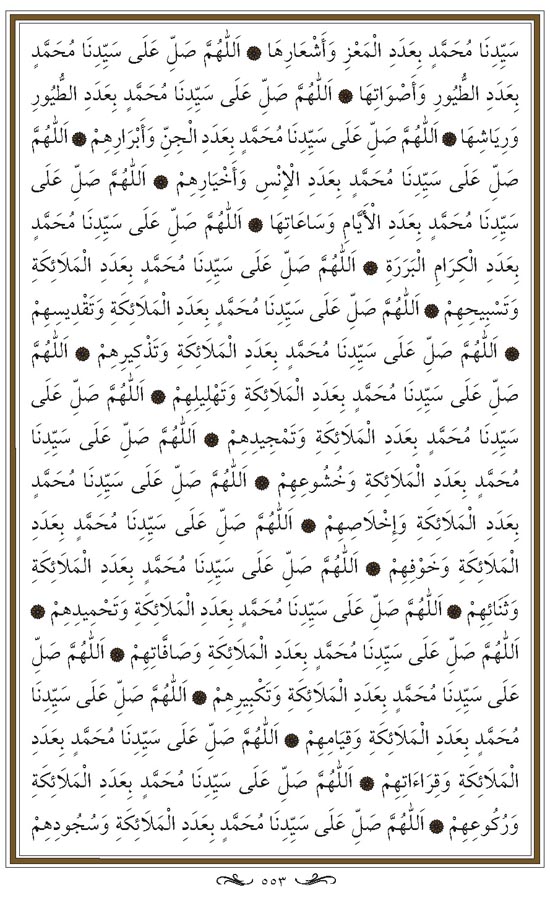 سَيِّدِنَا مُحَمَّدٍ بِعَدَدِ الْمَعْزِ وَأَشْعَارِهَا ۞ اَللّٰهُمَّ صَلِّ عَلَى سَيِّدِنَا مُحَمَّدٍ
بِعَدَدِ الطُّيُورِ وَأَصْوَاتِهَا ۞ اَللّٰهُمَّ صَلِّ عَلَى سَيِّدِنَا مُحَمَّدٍ بِعَدَدِ الطُّيُورِ
وَرِيَاشِهَا ۞ اَللّٰهُمَّ صَلِّ عَلَى سَيِّدِنَا مُحَمَّدٍ بِعَدَدِ الْجِنِّ وَأَبْرَارِهِمْ ۞ اَللّٰهُمَّ
صَلِّ عَلَى سَيِّدِنَا مُحَمَّدٍ بِعَدَدِ الْإِنْسِ وَأَخْيَارِهِمْ ۞ اَللّٰهُمَّ صَلِّ عَلَى
سَيِّدِنَا مُحَمَّدٍ بِعَدَدِ الْأَيَّامِ وَسَاعَاتِهَا ۞ اَللّٰهُمَّ صَلِّ عَلَى سَيِّدِنَا مُحَمَّدٍ
بِعَدَدِ الْكِرَامِ الْبَرَرَةِ ۞ اَللّٰهُمَّ صَلِّ عَلَى سَيِّدِنَا مُحَمَّدٍ بِعَدَدِ الْمَلَائِكَةِ
وَتَسْبِيحِهِمْ ۞ اَللّٰهُمَّ صَلِّ عَلَى سَيِّدِنَا مُحَمَّدٍ بِعَدَدِ الْمَلَائِكَةِ وَتَقْدِيسِهِمْ
۞ اَللّٰهُمَّ صَلِّ عَلَى سَيِّدِنَا مُحَمَّدٍ بِعَدَدِ الْمَلَائِكَةِ وَتَذْكِيرِهِمْ ۞ اَللّٰهُمَّ
صَلِّ عَلَى سَيِّدِنَا مُحَمَّدٍ بِعَدَدِ الْمَلَائِكَةِ وَتَهْلِيلِهِمْ ۞ اَللّٰهُمَّ صَلِّ عَلَى
سَيِّدِنَا مُحَمَّدٍ بِعَدَدِ الْمَلَائِكَةِ وَتَمْجِيدِهِمْ ۞ اَللّٰهُمَّ صَلِّ عَلَى سَيِّدِنَا
مُحَمَّدٍ بِعَدَدِ الْمَلَائِكَةِ وَخُشُوعِهِمْ ۞ اَللّٰهُمَّ صَلِّ عَلَى سَيِّدِنَا مُحَمَّدٍ
بِعَدَدِ الْمَلَائِكَةِ وَإِخْلَاصِهِمْ ۞ اَللّٰهُمَّ صَلِّ عَلَى سَيِّدِنَا مُحَمَّدٍ بِعَدَدِ
الْمَلَائِكَةِ وَخَوْفِهِمْ ۞ اَللّٰهُمَّ صَلِّ عَلَى سَيِّدِنَا مُحَمَّدٍ بِعَدَدِ الْمَلَائِكَةِ
وَثَنَائِهِمْ ۞ اَللّٰهُمَّ صَلِّ عَلَى سَيِّدِنَا مُحَمَّدٍ بِعَدَدِ الْمَلَائِكَةِ وَتَحْمِيدِهِمْ ۞
اَللّٰهُمَّ صَلِّ عَلَى سَيِّدِنَا مُحَمَّدٍ بِعَدَدِ الْمَلَائِكَةِ وَصَافَّاتِهِمْ ۞ اَللّٰهُمَّ صَلِّ
عَلَى سَيِّدِنَا مُحَمَّدٍ بِعَدَدِ الْمَلَائِكَةِ وَتَكْبِيرِهِمْ ۞ اَللّٰهُمَّ صَلِّ عَلَى سَيِّدِنَا
مُحَمَّدٍ بِعَدَدِ الْمَلَائِكَةِ وَقِيَامِهِمْ ۞ اَللّٰهُمَّ صَلِّ عَلَى سَيِّدِنَا مُحَمَّدٍ بِعَدَدِ
الْمَلَائِكَةِ وَقِرَاءَاتِهِمْ ۞ اَللّٰهُمَّ صَلِّ عَلَى سَيِّدِنَا مُحَمَّدٍ بِعَدَدِ الْمَلَائِكَةِ
وَرُكُوعِهِمْ ۞ اَللّٰهُمَّ صَلِّ عَلَى سَيِّدِنَا مُحَمَّدٍ بِعَدَدِ الْمَلَائِكَةِ وَسُجُودِهِمْ
٥٥٣